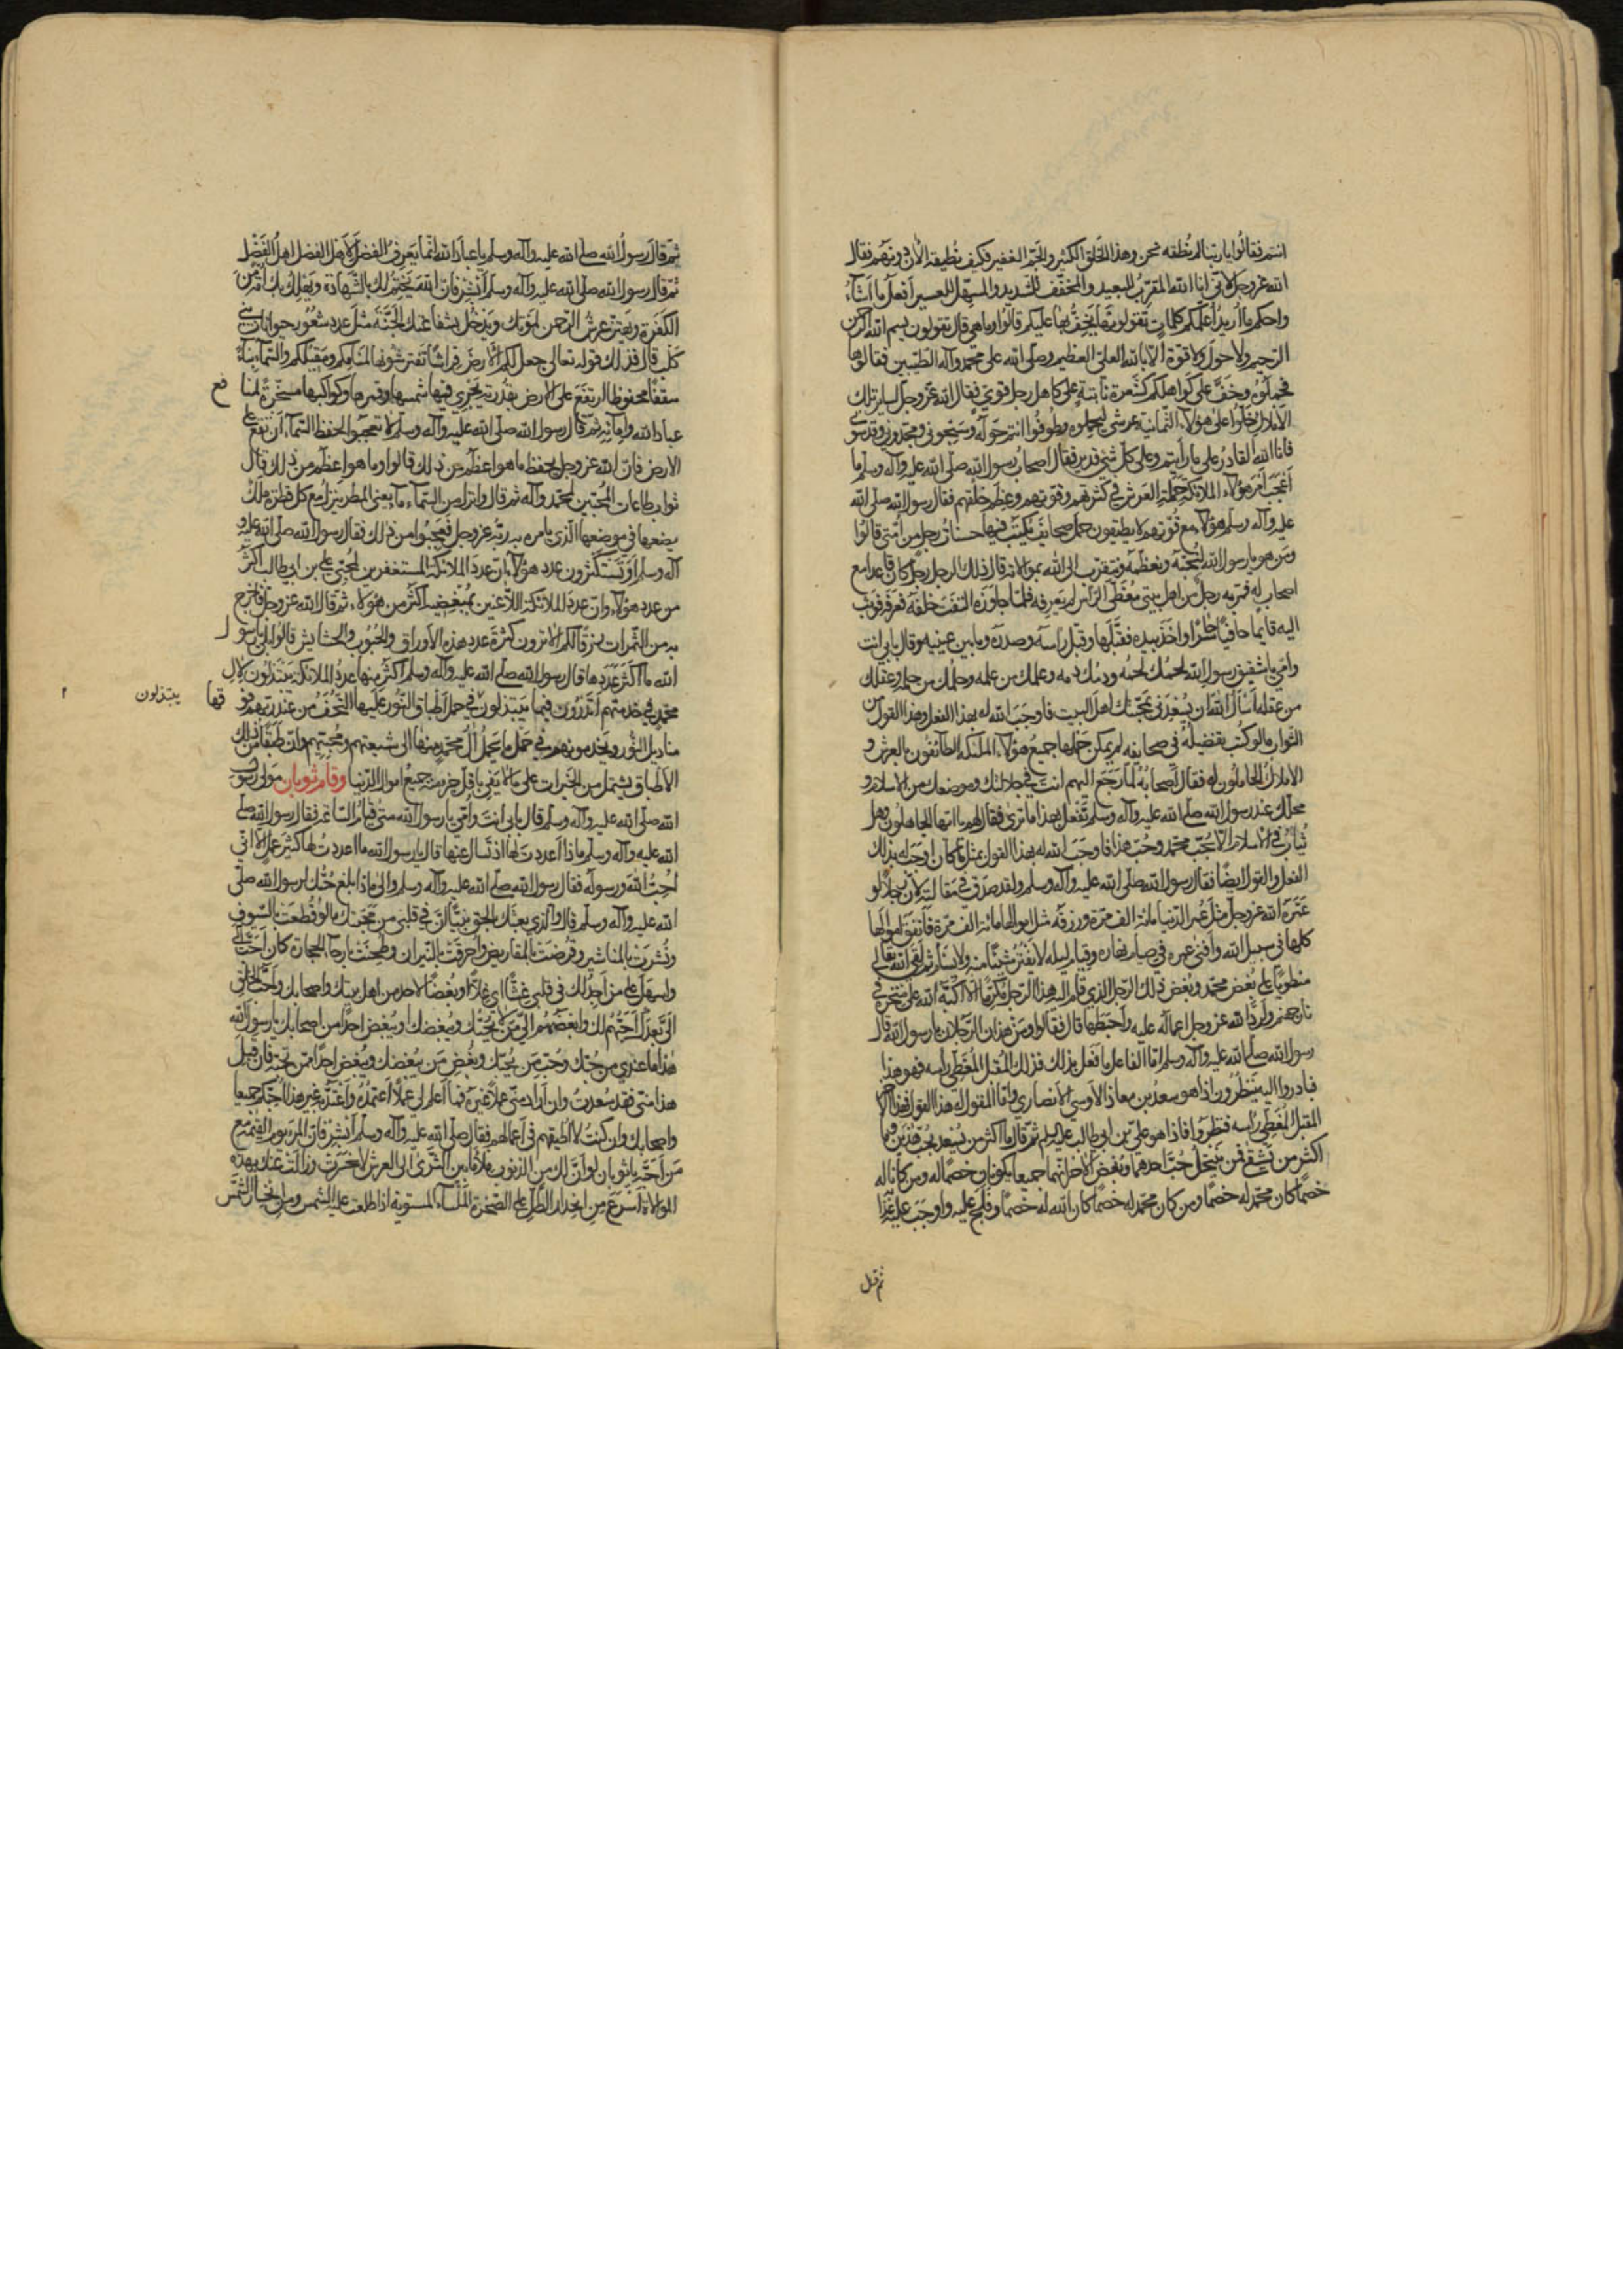 انتم فقالوا يا ربنا لم نطقه نحن وهذا الخلق الكثير والجم الغفير فكيف نطيقه الآن دونهم فقال
الله عز وجل لاني انا الله المقرب للبعيد والمخفف للشديد والمسهل للعسير افعل ما اشآء
واحكم ما اريد اعلمكم كلمات تقولونها يخف بها عليكم قالوا وما هي قال تقولون بسم الله الرحمن
الرحيم ولا حول ولا قوة الا بالله العلي العظيم وصلى الله على محمد وآله الطيبين فقالوها
فحملوه وخف على كواهلكم كشعرة نابتة على كاهل رجل قوي فقال الله عز وجل لساير تلك
الاملاك خلوا على هؤلاء الثمانية عرشي ليحملوه وطوفوا انتم حوله وسبحوني ومجدوني وقدسوني
فانا الله القادر على ما رأيتم وعلى كل شيء قدير فقال اصحاب رسول الله صلى الله عليه وآله وسلم ما
اعجب امر هؤلاء الملائكة حملة العرش في كثرتهم وقوتهم وعظم خلقهم فقال رسول الله صلى الله
عليه وآله وسلم هؤلاء مع قوتهم لا يطيقون حمل صحائف يكتب فيها حسنات رجل من امتي قالوا
ومن هو يا رسول الله لنحبه ونعظمه ونتقرب الى الله بموالاته قال ذلك الرجل رجل كان قاعدا مع
اصحاب له فمر به رجل من اهل بيتي مغطى الراس لم يعرفه فلما جاوزه التفت خلفه فعرفه فوثب
اليه قايما حافيا حاسرا واخذ بيده فقبلها وقبل راسه وصدره وما بين عينيه وقال بابي انت
وامي يا شقيق رسول الله لحمك لحمه ودمك دمه وعلمك من علمه وحلمك من حلمه وعقلك
من عقله اسأل الله ان يسعدني بمحبتك اهل البيت فاوجب الله له بهذا الفعل وهذا القول من
الثواب ما لو كتب تفضيله في صحايفه لم يمكن حملها جميع هؤلاء الملئكة الطائفون بالعرش و
الاملاك الحاملون له فقال اصحابه لما رجع اليهم انت في جلالتك وموضعك من الاسلام و
محلك عند رسول الله صلى الله عليه وآله وسلم تفعل بهذا ما ترى فقال لهم يا ايها الجاهلون وهل
يثاب في الاسلام الا بحب محمد وحب هذا فاوجب الله له بهذا القول بمثل ما كان اوجب له بذلك
الفعل والقول ايضا فقال رسول الله صلى الله عليه وآله وسلم ولقد صدق في مقالته لان رجلا لو
عمره الله عز وجل مثل عمر الدنيا مائة الف مرة ورزقه مثل اموالها مائة الف مرة فانفق اموالها
كلها في سبيل الله وافنى عمره في صيام نهاره وقيام ليله لا يفتر شيئا منه ولا يسأم ثم لقى الله تعالى
منطويا على بغض محمد وبغض ذلك الرجل الذي قام اليه هذا الرجل مكرما الا اكبه الله على منخره في
نار جهنم ولرد الله عز وجل اعماله عليه واحبطها قال فقالوا ومن هذان الرجلان يا رسول الله قال
رسول الله صلى الله عليه وآله وسلم اما الفاعل ما فعل بذلك فذلك المقبل المغطي راسه فهو هذا
فبادروا اليه ينظرون اذا هو سعد بن معاذ الاوسي الانصاري واما المقول له هذا القول فهذا الآخر
المقبل المغطي راسه فنظروا فاذا هو علي بن ابي طالب عليه السلم ثم قال ما اكثر من يسعد بحب هذين وما
اكثر من يشقى فمن ينتحل حب احدهما وبغض الآخر انهما جميعا يكونان خصما له ومن كانا له
خصما كان محمد له خصما ومن كان محمد له خصما كان الله له خصما وفلج عليه واوجب عليه عذابه
ثم قال
ثم قال رسول الله صلى الله عليه وآله وسلم يا عباد الله انما يعرف الفضل لاهل الفضل اهل الفضل
ثم قال رسول الله صلى الله عليه وآله وسلم ابشر فان الله يختم لك بالشهادة ويهلك بك امة من
الكفرة ويهتز عرش الرحمن لموتك ويدخل بشفاعتك الجنة مثل عدد شعور حيوانات بني
كلب قال فذلك قوله تعالى جعل لكم الارض فراشا تفترشونها لمنامكم ومقيلكم والسمآء بناء
سقفا محفوظا ارتفع على الارض بقدرته يجري فيها شمسها وقمرها وكواكبها مسخرة لمنافع
عباد الله وامآئه ثم قال رسول الله صلى الله عليه وآله وسلم لا تعجبوا لحفظ السمآء ان تقع على
الارض فان الله عز وجل يحفظ ما هو اعظم من ذلك قالوا وما هو اعظم من ذلك قال
ثواب طاعات المحبين لمحمد وآله ثم قال وانزل من السمآء مآء يعني المطر ينزل مع كل قطرة ملك
يضعها في موضعها الذي يامره به ربه عز وجل فعجبوا من ذلك فقال رسول الله صلى الله عليه و
آله وسلم او تستكثرون عدد هؤلاء ان عدد الملائكة المستغفرين لمحبي علي بن ابي طالب اكثر
من عدد هؤلاء وان عدد الملائكة اللاعنين لمبغضيه اكثر من هؤلاء ثم قال الله عز وجل فاخرج
به من الثمرات رزقا لكم الا ترون كثرة عدد هذه الاوراق والحبوب والحشايش قالوا بلى يا رسول
الله ما اكثر عددها قال رسول الله صلى الله عليه وآله وسلم اكثر منها عدد الملائكة يبتذلون لآل
محمد في خدمتهم أتدرون فيما يبتذلون في حمل اطباق النور عليها التحف من عند ربهم فوقها
يبتذلون
مناديل النور ويخدمونهم في حمل ما يحمل آل محمد منها الى شيعتهم ومحبيهم وان طبقا من ذلك
الاطباق يشتمل من الخيرات على ما لا يفي باقل جزء منه جميع اموال الدنيا وقام ثوبان مولى رسول
الله صلى الله عليه وآله وسلم قال بابي انت وامي يا رسول الله متى قيام الساعة فقال رسول الله صلى
الله عليه وآله وسلم ماذا اعددت لها اذ تسال عنها قال يا رسول الله ما اعددت لها كثير عمل الا اني
احب الله ورسوله فقال رسول الله صلى الله عليه وآله وسلم والى ماذا بلغ حبك لرسول الله صلى
الله عليه وآله وسلم قال والذي بعثك بالحق نبيا ان في قلبي من محبتك ما لو قطعت بالسيوف
ونشرت بالمناشير وقرضت بالمقاريض واحرقت بالنيران وطحنت بارحآء الحجارة كان احب الي
واسهل علي من ان اجد لك في قلبي غشا او غلا او بغضا لاحد من اهل بيتك واصحابك واحب الخلق
الي بعدك احبهم لك وابغضهم الي من لا يحبك ويبغضك او يبغض احدا من اصحابك يا رسول الله
هذا ما عندي من حبك وحب من يحبك وبغض من يبغضك ويبغض احدا ممن تحبه فان قبل
هذا مني فقد سعدت وان اراد مني عملا غيره فما اعلم لي عملا اعتمده واعتد به غير هذا احبكم جميعا
واصحابك وان كنت لا اطيقهم في اعمالهم فقال صلى الله عليه وآله وسلم ابشر فان المرء يوم القيمة مع
من احبه يا ثوبان لو ان لك من الذنوب ملأ ما بين الثرى الى العرش لانحسرت وزالت عنك بهذه
الموالاة اسرع من انحدار الظل على الصخرة الملسآء المستوية اذا طلعت عليه الشمس ومن انحسار الشمس